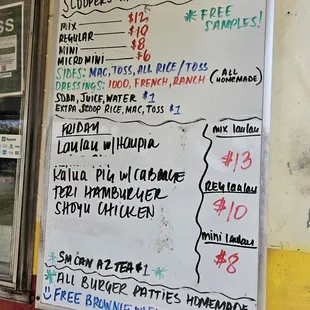 SCOOPERS
* FREE SAMPLES!
MIX $12
REGULAR $10
MINI $8
MICROMINI $6
SIDES: MAC, TOSS, ALL RICE / TOSS
DRESSINGS: 1000, FRENCH, RANCH (ALL HOMEMADE)
SODA, JUICE, WATER $1
EXTRA SCOOP RICE, MAC, TOSS $1
FRIDAY
LauLau w/Haupia
KaLua Pig w/ CABBAGE
TERI HAMBURGER
SHOYU CHICKEN
* SM CAN AZ TEA $1 *
mix laulau
$13
REG laulau
$10
mini laulau
$8
* ALL BURGER PATTIES HOMEMADE
FREE BROWNIE